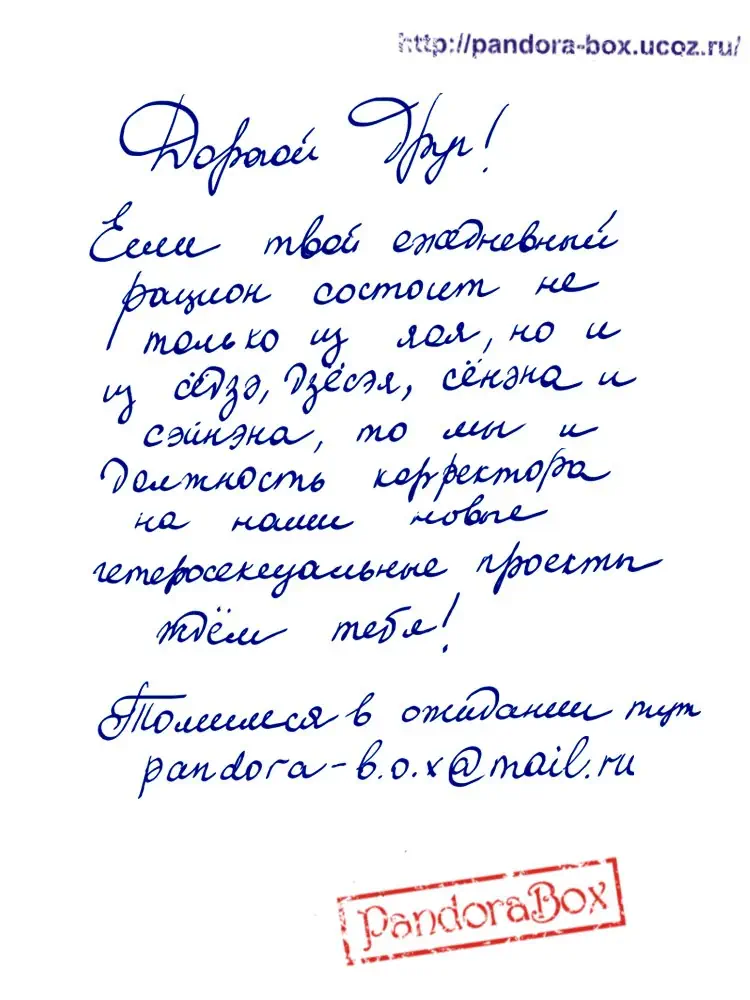 http://pandora-box.ucoz.ru/
Дорогой Друг!
Если твой ежедневный
рацион состоит не
только из яоя, но и
из сёдзё, дзёсэя, сёнэна и
сэйнэна, то мы и
должность корректора
на наши новые
гетеросексуальные проекты
ждём тебя!
Томимся в ожидании тут
pandora-b.o.x@mail.ru
PandoraBox